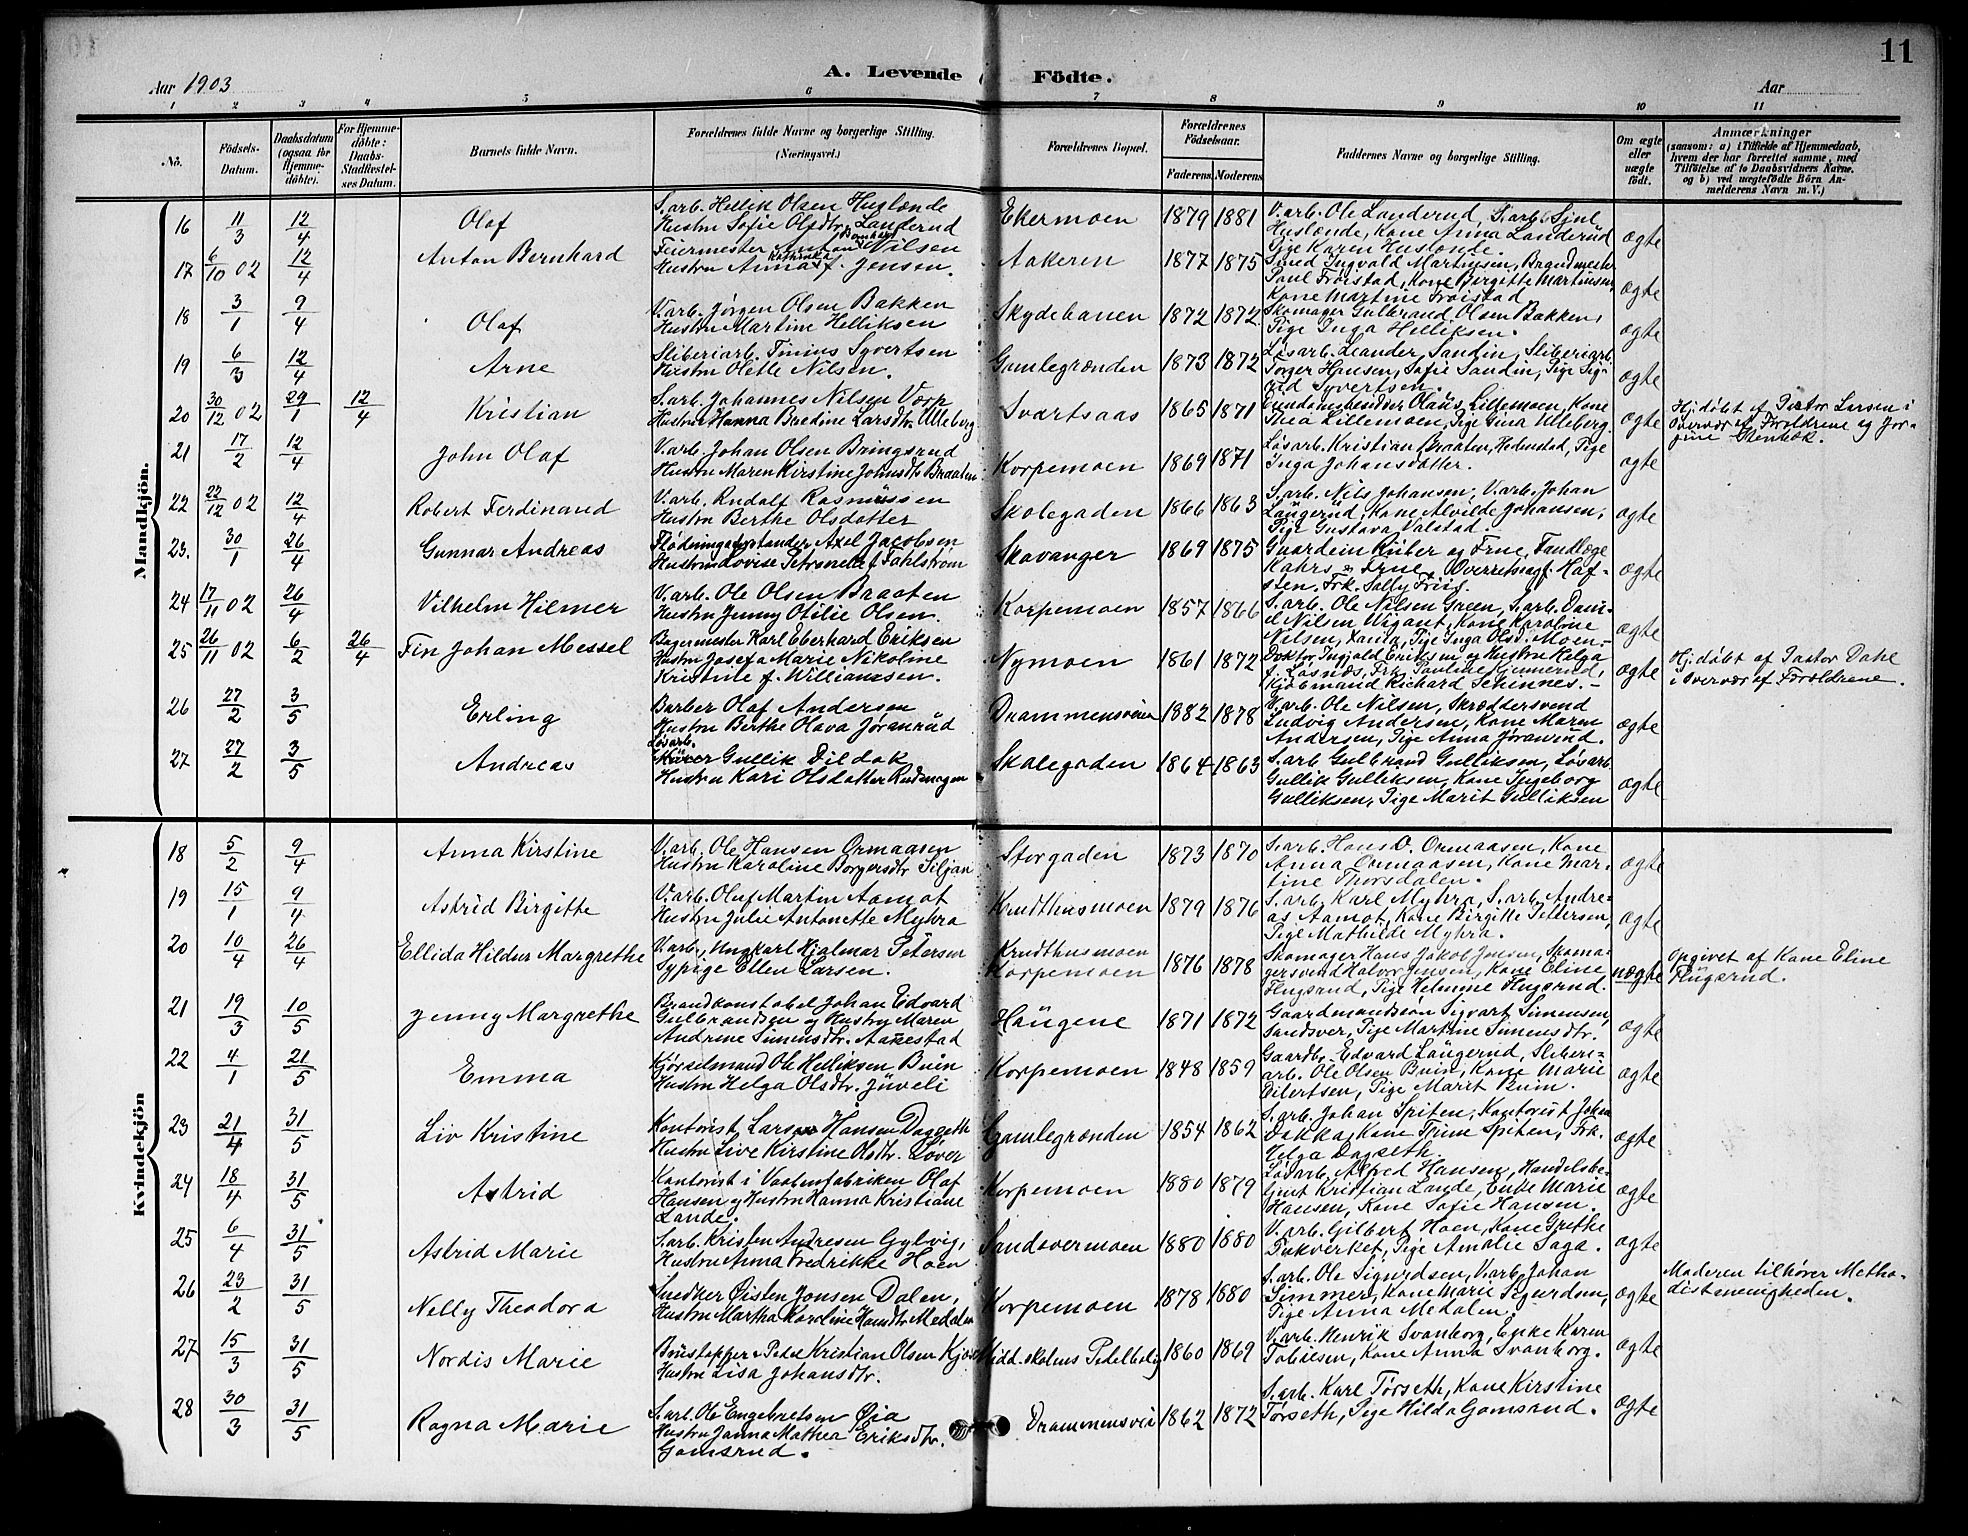 11
Aar 1903
A. Levende Födte.
Aar
1 2 3 4 5 6 7 8 9 10 11
No.
Födsels-Datum.
Daabsdatum (ogsaa for Hjemme-döbte).
For Hjemme-döbte: Daabs-Stadfæstel-ses Datum.
Barnets fulde Navn.
Forældrenes fulde Navne og borgerlige Stilling.
(Næringsvei.)
Forældrenes Bopæl.
Forældrenes Födselsaar.
Faderens Moderens
Faddernes Navne og borgerlige Stilling.
Om ægte eller uægte födt.
Anmærkninger
(saasom: a) i Tilfælde af Hjemmedaab, hvem der har forrettet samme, med Tilföielse af to Daabsvidners Navne. og b) ved uægtefödte Börn An-melderens Navn m. V.)
Mandkjön.
16 11/3 12/4 Olaf
S. arb. Hellik Olsen Huslænde
Hustru Sofie Olsdtr. Landerud
Ekermoen 1879 1881
V. arb. Ole Landerud, S. arb. Sjul
Huslænde, Kone Anna Landerud
Pige Karen Huslænde.
ægte
17 6/10 02 12/4 Anton Bernhard
Feiermester Anton Bernhard Nilsen
Hustru Anna Kathinka f. Jensen.
Aakeren 1877 1875
Smed Ingvald Martinsen, Brandmester
Paul Frøistad, Kone Birgitte Martinsen,
Kone Martine Frøistad
ægte
18 3/1 9/4 Olaf
V. arb. Jørgen Olsen Bakken
Hustru Martine Helliksen
Skydebanen 1872 1872
Skomager Gulbrand Olsen Bakken,
Pige Inga Helliksen.
ægte
19 6/3 12/4 Arne
Sliberiarb. Tinius Syvertsen
Hustru Olette Nilsen.
Gamlegrænden 1873 1872
Løsarb. Leander Sandin, Sliberiarb.
Torger Hansen, Sofie Sandin, Pige Sig-
rid Syvertsen.
ægte
20 30/12 02 29/1 12/4 Kristian
S. arb. Johannes Nilsen Værp
Hustru Hanna Bredine Larsdtr. Ulleberg
Svartsaas 1865 1871
Eiendomsbesidder Olaus Lillemoen, Kone
Thea Lillemoen, Pige Gina Ulleberg.
ægte
Hj. døbt af Pastor Larsen i
Overvær af Forældrene og Jor-
gine Stenbæk.
21 17/2 12/4 John Olaf
V. arb. Johan Olsen Bringsrud
Hustru Maren Kirstine Johnsdtr. Braaten
Korpemoen 1869 1871
Løsarb. Kristian Braaten, Hedenstad, Pige
Inga Johansdatter.
ægte
22 22/12 02 12/4 Robert Ferdinand
V. arb. Rudolf Rasmussen
Hustru Berthe Olsdatter
Skolegaden 1866 1863
S. arb. Nils Johansen, V. arb. Johan
Laugerud, Kone Alvilde Johansen,
Pige Gustava Valstad.
ægte
23. 30/1 26/4 Gunnar Andreas
Axel Jacobsen
Hustru Lovise Petronelle f. Fahlstrøm
Skavanger 1869 1875
Guardein Riiber og Frue, Tandlæge
Kahrs & Frue, Overretssagf. Haf-
sten, Frk. Sally Friis.
ægte
24 17/11 02 26/4 Vilhelm Hilmer
V. arb. Ole Olsen Braaten
Hustru Jenny Otilie Olsen.
Korpemoen 1857 1866
S. arb. Ole Nilsen Green, S. arb. Dani-
el Nilsen Wigant, Kone Karoline
Nilsen, Pige Inga Olsd. Moen.
ægte
25 26/11 02 6/2 26/4 Fin Johan Messel
Bagermester Karl Eberhard Eriksen
Hustru Josefa Marie Nikoline
Kristine f. Williamsen.
Nymoen 1861 1872
Doktor Ingjald Eriksen og Hustru Helga
f. Løsnæs, Frk. Pauline Kjennerud,
Kjøbmand Richard Schinnes.
ægte
Hj. døbt af Pastor Dahl
i Overvær af Forældrene.
26 27/2 3/5 Erling
Barber Olaf Andersen
Hustru Berthe Olava Jøranrud
Drammensveien 1882 1878
V. arb. Ole Nilsen, Skræddersvend
Ludvig Andersen, Kone Maren
Andersen, Pige Anna Jøranrud.
ægte
27 27/2 3/5 Andreas
Løsarb.
Gullik Dildak
Hustru Kari Olsdatter Rudsmogen
Skolegaden 1864 1863
S. arb Gulbrand Gulliksen, Løsarb
Gullik Gulliksen, Kone Ingeborg
Gulliksen, Pige Marit Gulliksen
ægte
Kvindekjön
18 5/2 9/4 Anna Kirstine
V. arb. Ole Hansen Ormaasen
Hustru Karoline Borgersdtr. Siljan
Storgaden 1873 1870
S. arb. Hans O. Ormaasen, Kone
Anna Ormaasen, Kone Mar-
tine Thorsdalen.
ægte
19 15/1 9/4 Astrid Birgitte
V. arb. Oluf Martin Aamot
Hustru Julie Antonette Myhra
Krudthusmoen 1879 1876
S. arb. Karl Myhra, S. arb. Andre-
as Aamot, Kone Birgitte Pettersen,
Pige Mathilde Myhra.
ægte
20 10/4 26/4 Ellida Hildur Margrethe
V. arb., Ungkarl Hjalmar Petersen
Sypige Ellen Larsen.
Krudthusmoen
Korpemoen
1876 1878
Skomager Hans Jakob Jensen, Skoma-
gersvend Halvor Jensen, Kone Eline
Flugsrud, Pige Helmine Flugsrud.
uægte
Opgivet af Kone Eline
Flugsrud.
21 19/3 10/5 Jenny Margrethe
Brandkonstabel Johan Edvard
Gulbrandsen og Hustru Maren
Andrine Simensdtr. Aanestad
Haugene 1871 1872
Gaardmandssøn Sigvart Simensen,
Sandsver, Pige Martine Simensdtr.
ægte
22 4/1 21/5 Emma
Kjørselmand Ole Helliksen Buin
Hustru Helga Olsdtr. Juveli
Korpemoen 1848 1859
Gaardbr. Edvard Laugerud, Sliberi-
arb. Ole Olsen Buin, Kone Marie
Eilertsen, Pige Marit Buin.
ægte
23 21/4 31/5 Liv Kristine
Kontorist Lars Hansen Dagseth
Hustru Live Kirstine Olsdtr. Løver
Gamlegrænden 1854 1862
S. arb. Johan Spiten, Kontorist Johan
Dokka, Kone Trine Spiten, Frk.
Helga Dagseth.
ægte
24 18/4 31/5 Astrid
Kontorist i Vaabenfabriken Olaf
Hansen og Hustru Hanna Kristiane
Lande.
Korpemoen 1880 1879
Løsarb. Alfred Hansen, Handelsbe-
tjent Kristian Lande, Enke Marie
Hansen, Kone Sofie Hansen.
ægte
25 6/4 31/5 Astrid Marie
S. arb. Kristen Andresen Gylvig,
Hustru Anna Fredrikke Hoen
Sandsvermoen 1880 1880
V. arb. Gilbert Hoen, Kone Grethe
Pukverket, Pige Amalie Saga.
ægte
26 23/2 31/5 Nelly Theodora
Snedker Øisten Jonsen Dalen,
Hustru Martha Karoline Hansdtr Medalen
Korpemoen 1878 1880
S. arb. Ole Sigurdsen, V. arb. Johan
Simmer, Kone Marie Sigurdsen,
Pige Anna Medalen.
ægte
Moderen tilhører Metho-
distmenigheden.
27 15/3 31/5 Nordis Marie
Peder Kristian Olsen
Hustru Lisa Johansdtr.
Midd.skolens Pedelbolig 1860 1869
V. arb. Henrik Svanborg, Enke Karen
Tobiesen, Kone Anna Svanborg.
ægte
28 30/3 31/5 Ragna Marie
S. arb. Ole Engebretsen Øia
Hustru Janna Mathea Eriksdtr.
Gomsrud.
Drammensvei 1862 1872
S. arb. Karl Tørseth, Kone Kirstine
Tørseth, Pige Hilda Gomsrud.
ægte